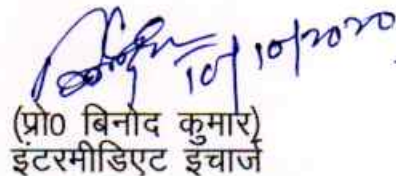 10/10/2020
(प्रो0 बिनोद कुमार)
इंटरमीडिएट इंचार्ज